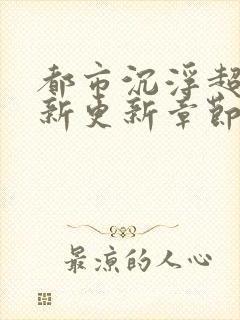 都市沉浮超
新更新章節
最凉的人心